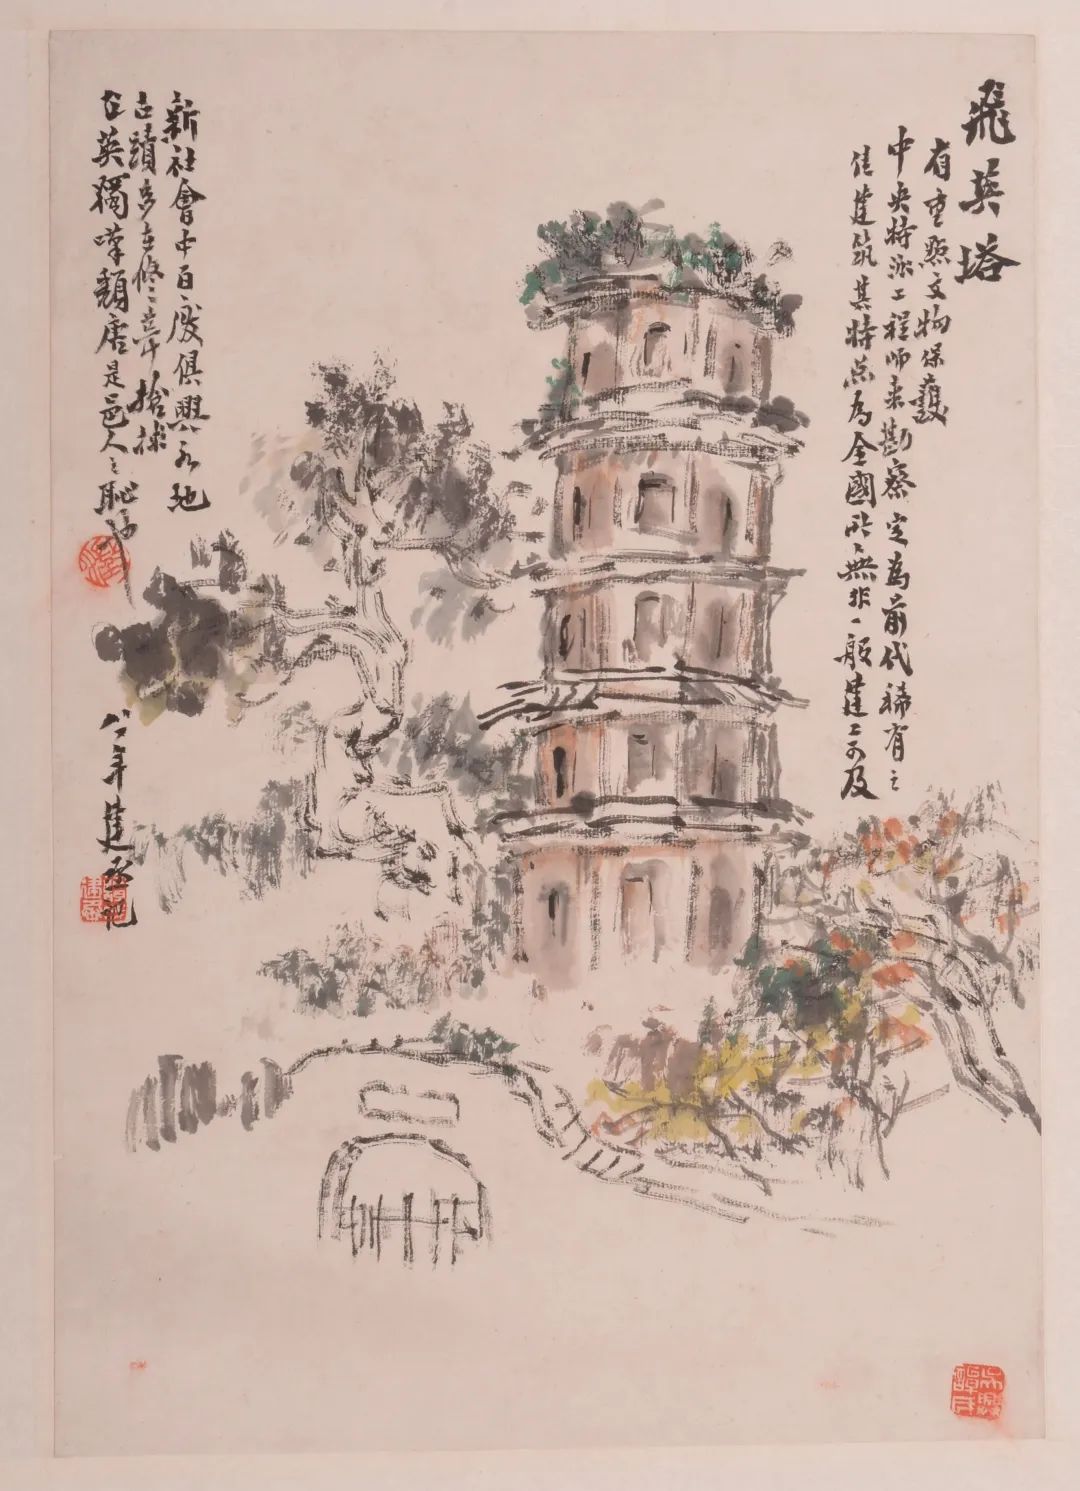 飛英塔
有重點文物保護
中央特派工程师来勘察定為前代稀有之
佳建筑其特点為全國所無非一般建工可及
新社會中百廢俱興各地
古蹟多在修
英獨嘆頹唐是邑人之恥
年建